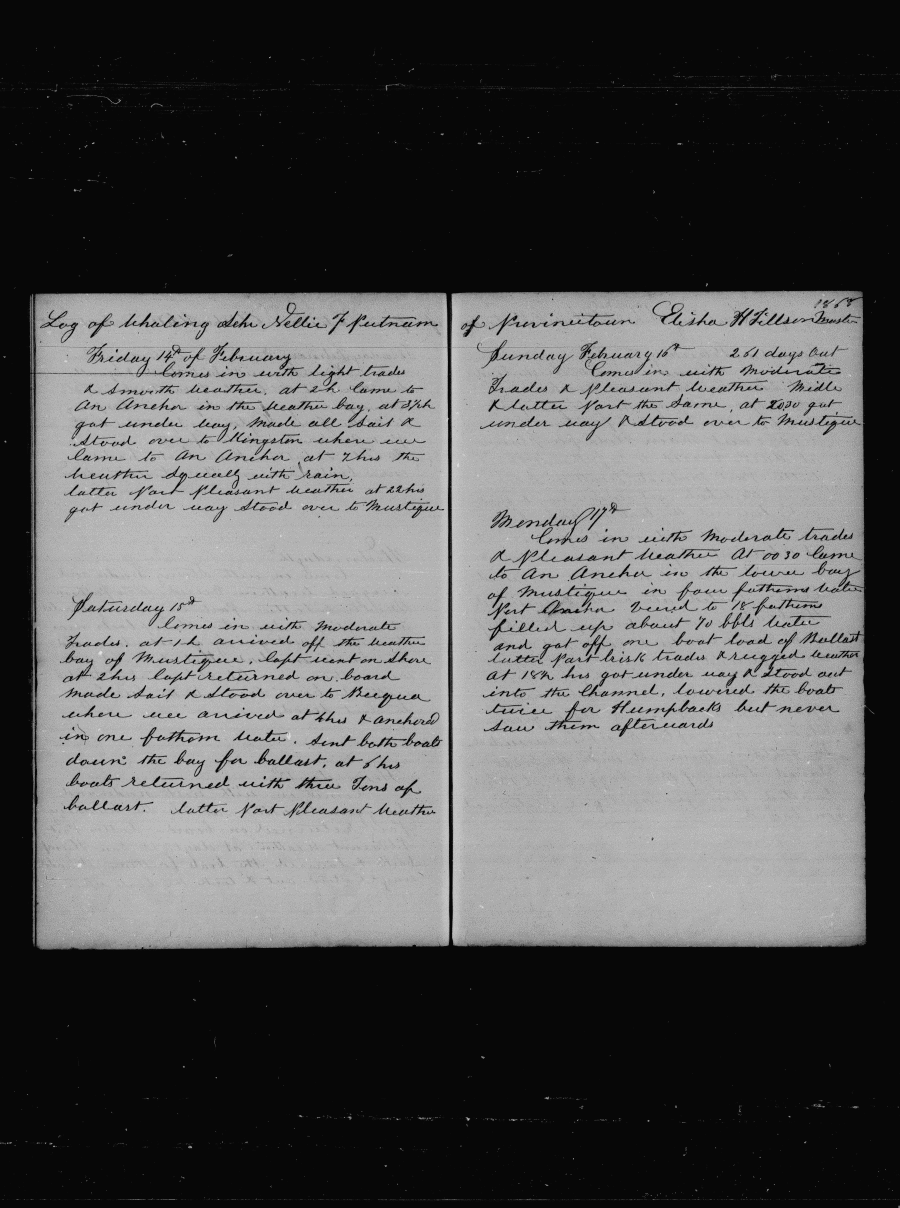 Log of Whaling Schr Nellie F Putnam
Friday 14th of February
Comes in with light trades
& smooth weather, at 2 h Came to
An Anchor in the weather bay, at 3½h
got under way, made all sail &
stood over to Kingston where we
Came to An Anchor at 7 hrs the
weather squally with rain,
latter Part Pleasant weather at 22 hrs
got under way stood over to Mustique
Saturday 15d
Comes in with moderate
trades, at 1 h arrived off the weather
bay of Mustique, Capt went on shore
at 2 hrs Capt returned on board
made sail & stood over to Becqua
where we arrived at 4 hrs & anchored
in one fathom water. Sent both boats
down the bay for ballast, at 6 hrs
boats returned with three Tons of
ballast. latter Part Pleasant weather
1868
of Provincetown Elisha H Tillson Master
Sunday February 16th 261 days out
Comes in with moderate
trades & Pleasant weather Midle
& latter Part the Same, at 2030 got
under way & stood over to Mustique
Monday 17d
Comes in with moderate trades
& Pleasant weather At 00 30 Came
to An Anchor in the lower bay
of Mustique in four fathoms water
Port Anchor veered to 18 fathoms
filled up about 70 bbls water
and got off one boat load of Ballast
latter Part brisk trades & rugged weather
at 18½ hrs got under way & stood out
into the Channel, lowered the boats
twice for Humpbacks but never
saw them afterwards